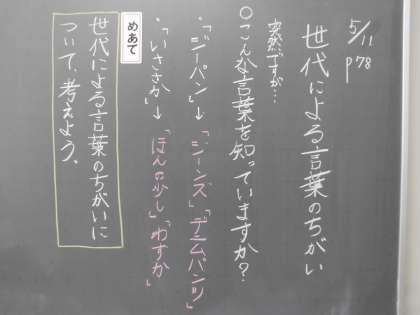 5/11
p78
世代による言葉のちがい
突然ですが…
○こんな言葉を知っていますか?
・「ジーパン」→「ジーンズ」「デニムパンツ」
・「いささか」→「ほんの少し」「わずか」
めあて
世代による言葉のちがいに
ついて、考えよう。